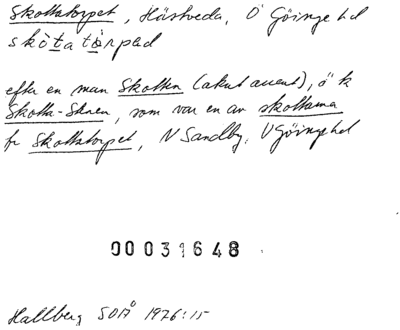 Skottatorpet, Hästveda, Ö Göinge hd
skòta tòrpəd
efter en man Skotten (akut accent), ö k
Skotta-Stinen, som var en av skottarna
fr Skottatorpet, N Sandby, V Göinge hd
00031648
Hallberg SOÅ 1976:15